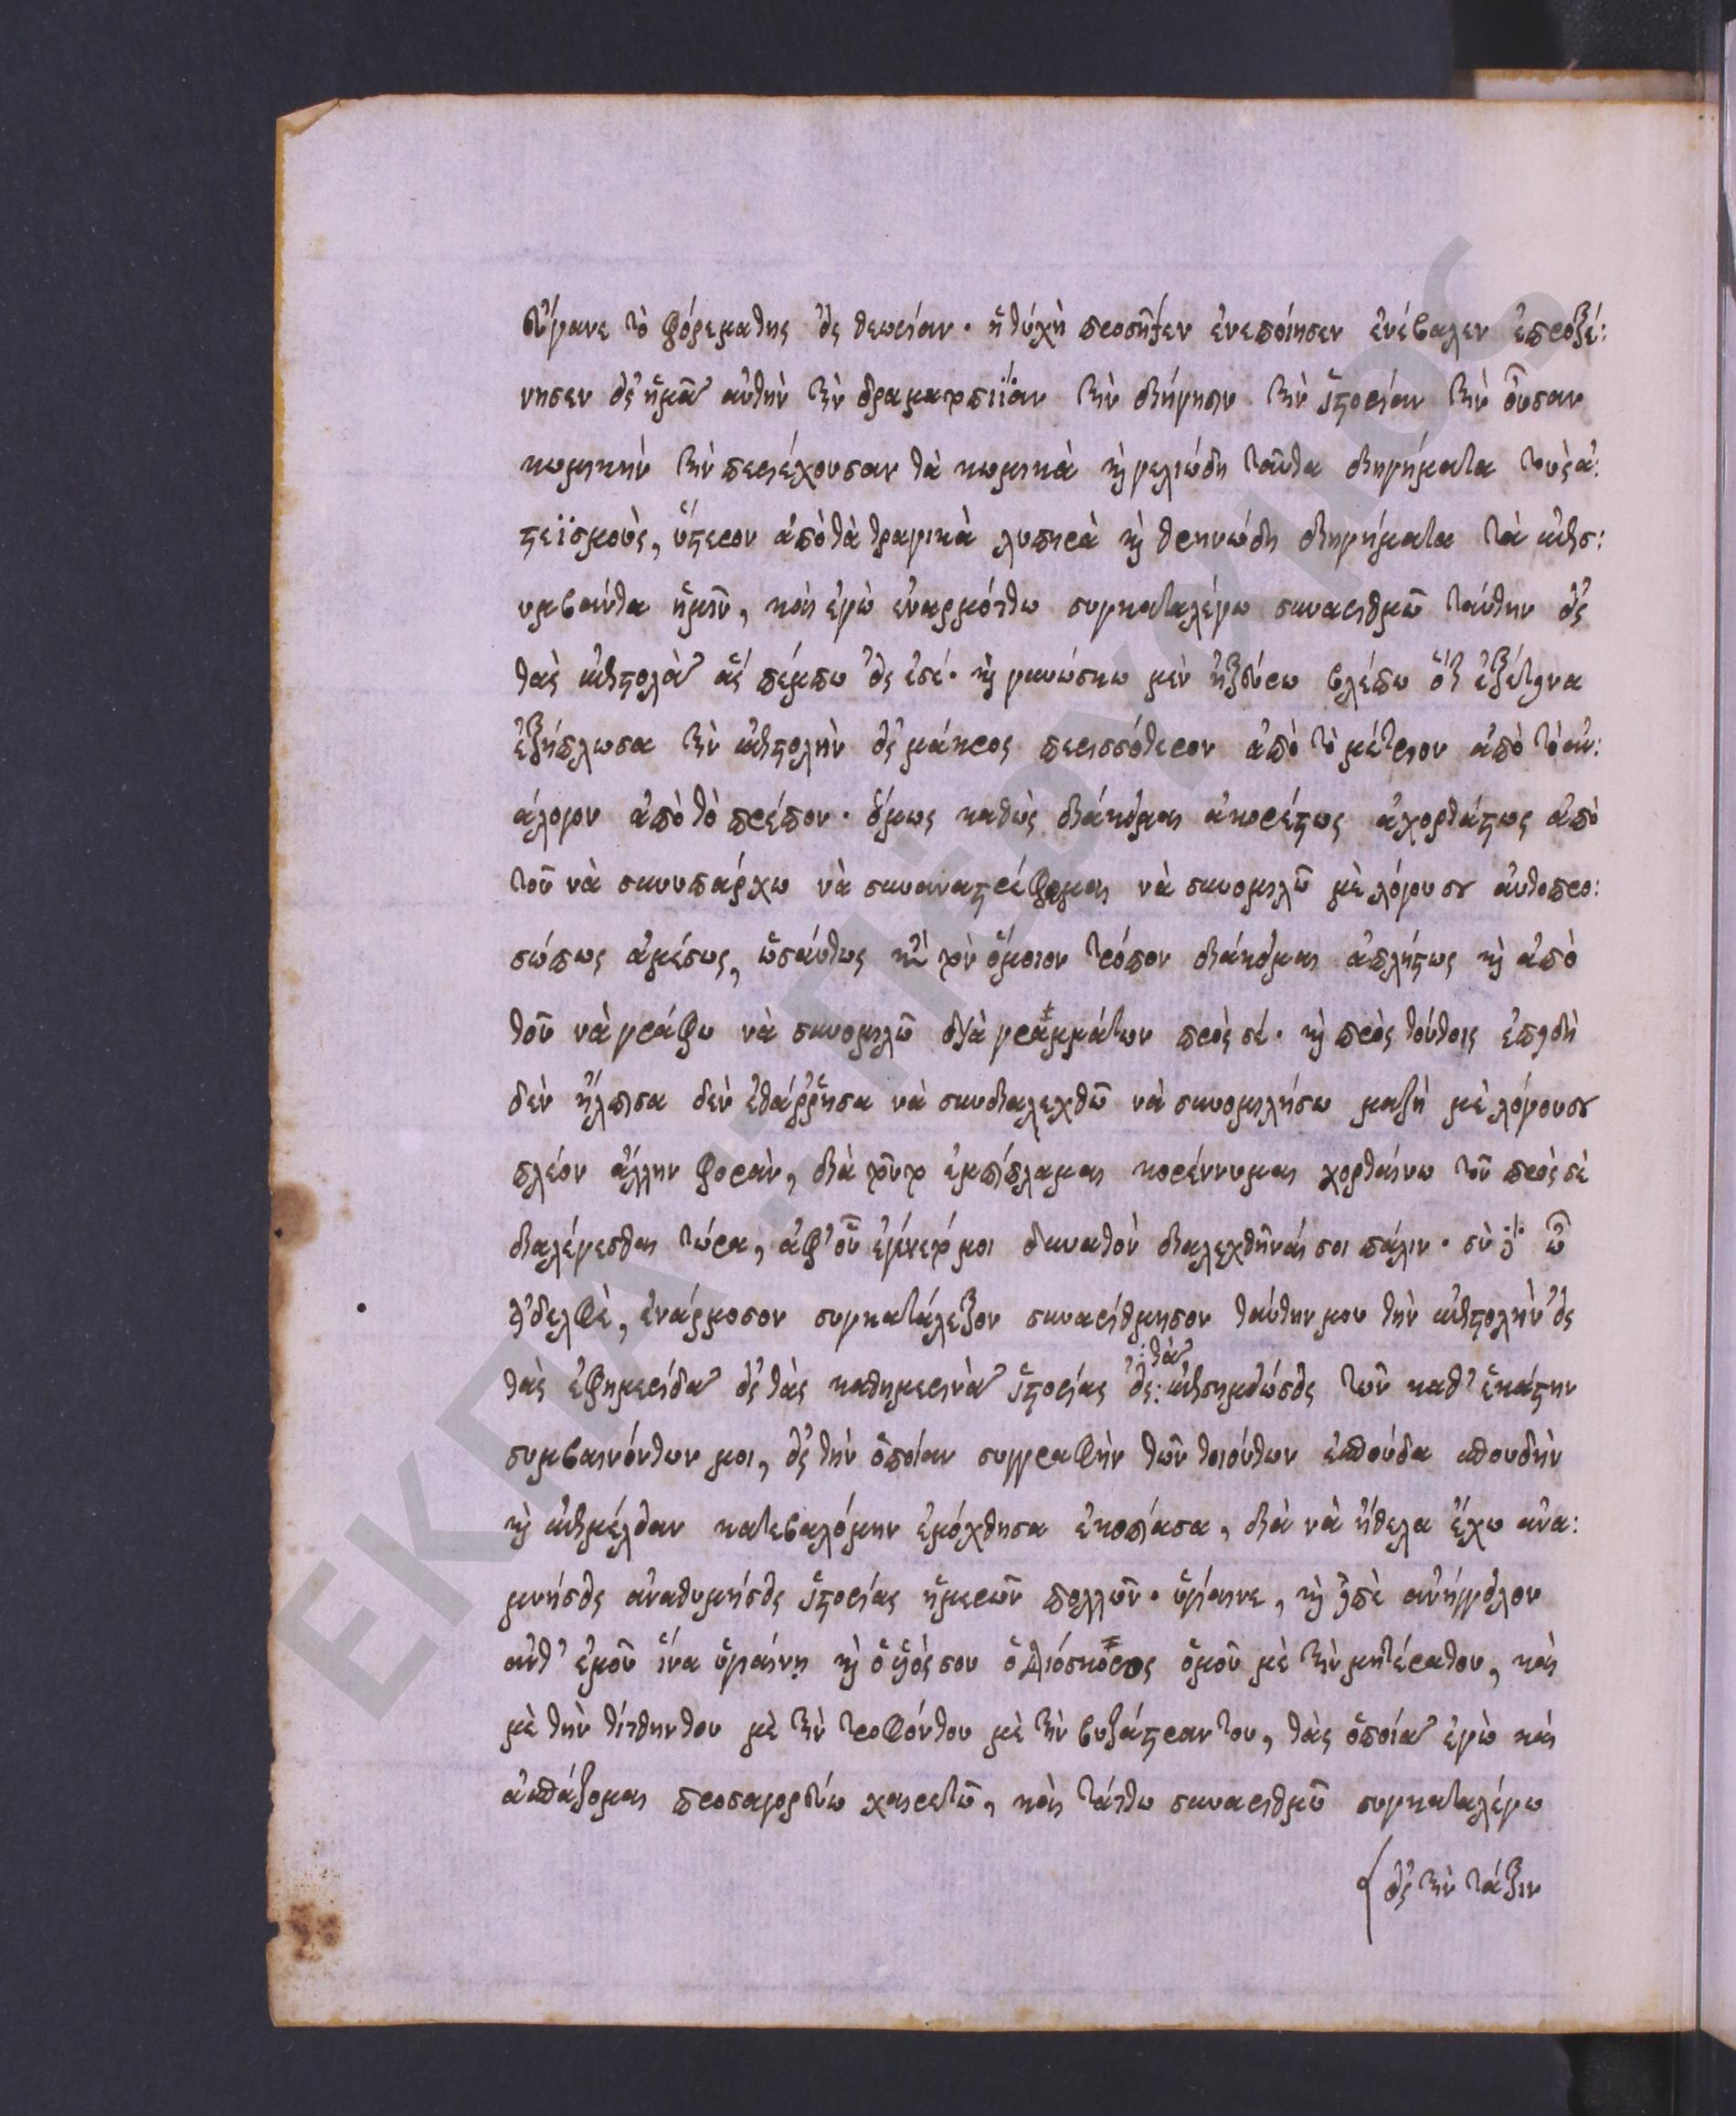 εὔγανε τὸ φόρεμάτης εἰς θεωρίαν · ἡ τύχη προσῆψεν ἐνεποίησεν ἐνέβαλεν ἐπροξέ:
νησεν εἰς ἡμᾶς αὐτὴν τὴν δραματοποιΐαν τὴν διήγησιν τὴν ἱστορίαν τὴν οὖσαν
κωμικὴν τὴν περιέχουσαν τὰ κωμικὰ καὶ γελιώδη ταῦτα διηγήματα τοὺς ἀ:
στεϊσμοὺς, ὕστερον ἀπὸ τὰ τραγικὰ λυπηρὰ καὶ θρηνώδη διηγήματα τὰ ἐπισ:
υμβαίντα ἡμῖν, καὶ ἐγὼ ἐναρμόττω συγκαταλέγω συναριθμῶ ταύτην εἰς
τὰς ἐπιστολὰς ἃς πέμπω εἰς ἐσέ · καὶ γινώσκω μὲν ἠξεύρω βλέπω ὅτι ἐξέτεινα
ἐξήπλωσα τὴν ἐπιστολὴν εἰς μάκρος περισσότερον ἀπὸ τὸ μέτριον ἀπὸ τὸ ἀν:
άλογον ἀπὸ τὸ πρέπον · ὅμως καθὼς διάκειμαι ἀκορέστως ἀχορτάστως ἀπὸ
τοῦ νὰ συνυπάρχω νὰ συναναστρέφομαι νὰ συνομιλῶ μὲ λόγου σου αὐτοπρο:
σώπως ἀμέσως, ὡσαύτως κατὰ τὸν ὅμοιον τρόπον διάκειμαι ἀπλήστως καὶ ἀπὸ
τοῦ νὰ γράφω νὰ συνομιλῶ διὰ γραμμάτων πρὸς σέ · καὶ πρὸς τούτοις ἐπειδὴ
δὲν ἤλπισα δὲν ἐθάῤῥησα νὰ συνδιαλεχθῶ νὰ συνομιλήσω μαζὴ μὲ λόγουσου
πλέον ἄλλην φορὰν, διὰ τοῦτο ἐμπίπλαμαι κορέννυμαι χορταίνω τοῦ πρὸς σὲ
διαλέγεσθαι τώρα, ἀφ' οὗ ἐγένετό μοι δυνατὸν διαλεχθῆναί σοι πάλιν · σὺ δὲ ὦ
ἀδελφὲ, ἐνάρμοσον συγκατάλεξον συναρίθμησον ταύτην μου τὴν ἐπιστολὴν εἰς
τὰς ἐφημερίδας εἰς τὰς καθημερινὰς ἱστορίας εἰς: τὰς ἐπισημειώσεις τῶν καθ' ἑκάστην
συμβαινόντων μοι, εἰς τὴν ὁποίαν συγγραφὴν τῶν τοιούτων ἐσπούδα σπουδὴν
καὶ ἐπιμέλειαν κατεβαλόμην ἐμόχθησα ἐκοπίασα, διὰ νὰ ἤθελα ἔχω ἀνα:
μνήσεις ἀναθυμήσεις ἱστορίας ἡμερῶν πολλῶν · ὑγίαινε, καὶ εἰπὲ ἀνήγγειλον
ἀντ' ἐμοῦ ἵνα ὑγιαίνῃ καὶ ὁ υἱός σου ὁ Διόσκορος ὁμοῦ μὲ τὴν μητέρατου, καὶ
μὲ τὴν τίτθηντου μὲ τὴν τροφόντου μὲ τὴν βυζάστραντου, τὰς ὁποίας ἐγὼ καὶ
ἀσπάζομαι προσαγορεύω χαιρετῶ, καὶ τάττω συναριθμῶ συγκαταλέγω
εἰς τὴν τάξιν
ΕΚΠΑ